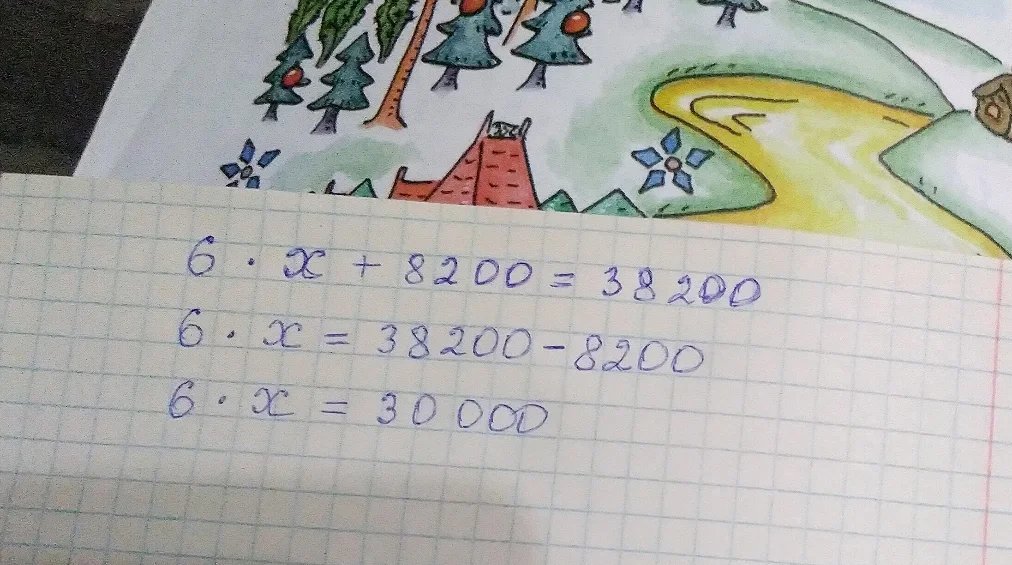 6 · x + 8200 = 38200
6 · x = 38200 - 8200
6 · x = 30 000